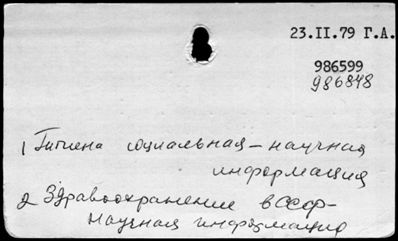 23.II.79 Г.А.
986599
986848
1 Гигиена социальная – научная
информация
2 Здравоохранение в СССР –
научная информация